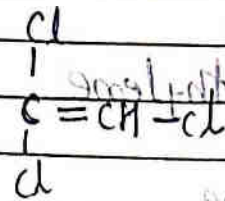 Cl
C = CH - Cl
Cl